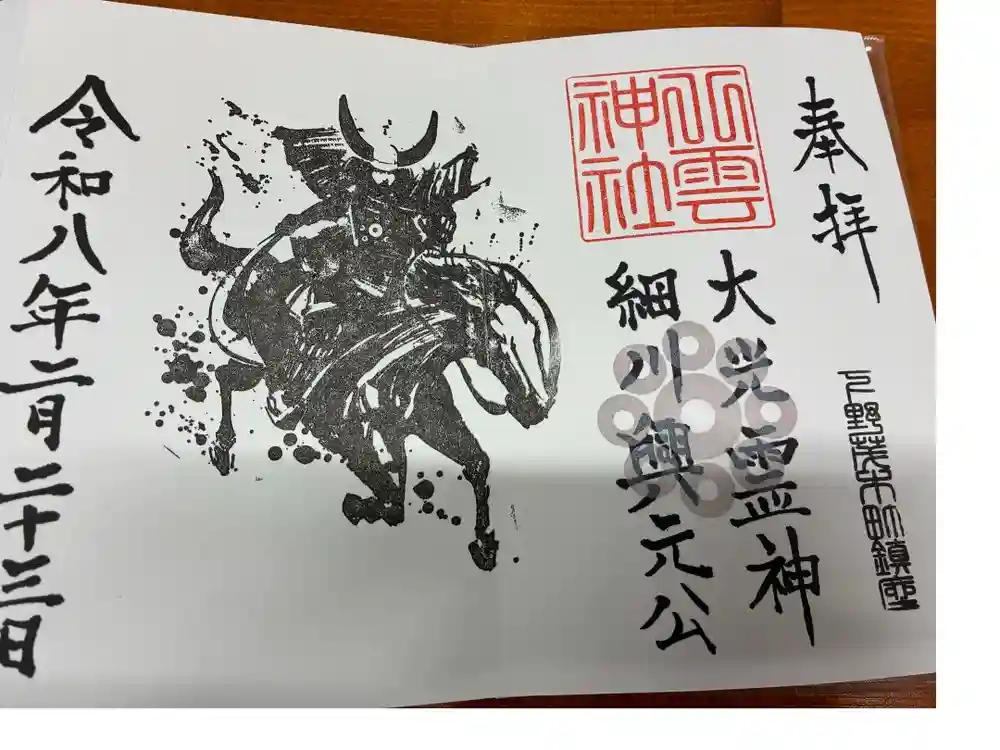 奉拝
下野茂木町鎮座
八雲神社
大光霊神
細川興元公
令和八年二月二十三日